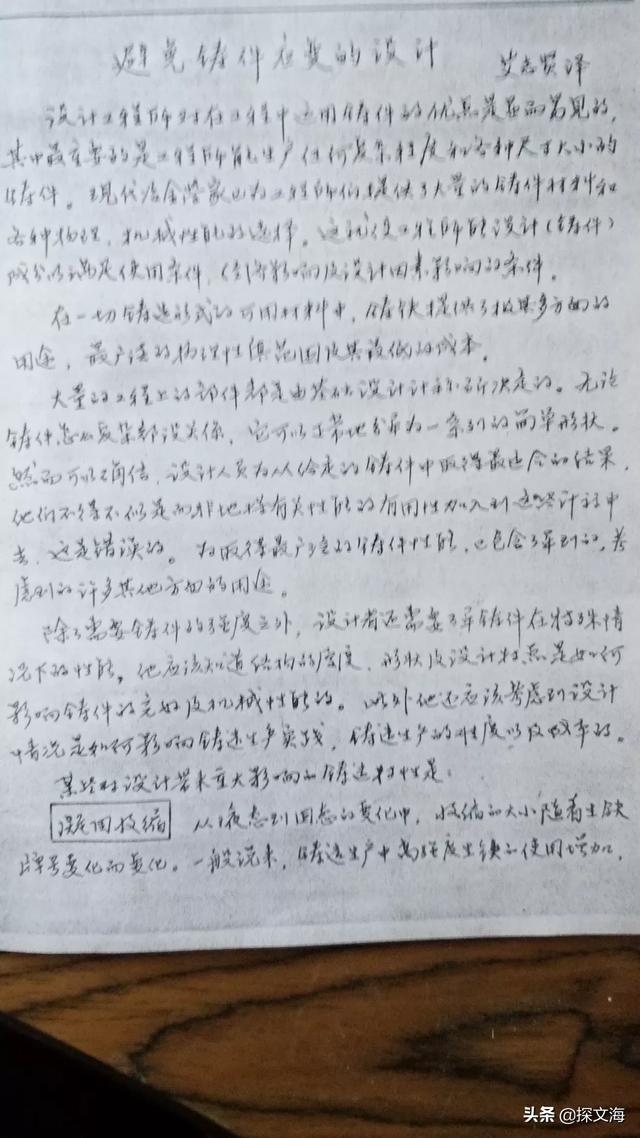 避免铸件应变的设计
艾志贤译
设计工程师对在工程中运用铸件的优点是显而易见的,
其中最重要的是工程师能生产任何复杂程度和各种尺寸大小的
铸件。现代冶金学家已为工程师们提供了大量的铸件材料和
各种物理,机械性能的选择。这就使工程师能设计(铸件)
成分以满足使用条件,经济影响及设计因素影响的条件。
在一切铸造形式的可用材料中,铸铁提供了极其多方面的
用途,最广泛的物理性质范围及其较低的成本。
大量的工程上的部件都是由基础设计计算所决定的。无论
铸件怎么复杂都没关系,它可以正常地分解为一系列的简单形状。
然而可以确信,设计人员为从给定的铸件中取得最适合的结果,
他们不得不似是而非地将有关性能的有用性加入到这些计算中
去,这是错误的。为取得最广泛的铸件性能,已包含了算到的,考
虑到的许多其他方面的用途。
除了需要铸件的强度之外,设计者还需要了解铸件在特殊情
况下的性能,他应该知道结构的密度,形状及设计特点是如何
影响铸件的完好及机械性能的。此外他还应该考虑到设计
情况是如何影响铸造生产实践,铸造生产的进度以及成本的。
某些对设计带来重大影响的铸造特性是:
凝固收缩 从液态到固态的变化中,收缩的大小随着生铁
牌号变化而变化。一般说来,铸造生产中高强度生铁的使用增加,
头条 @探文海